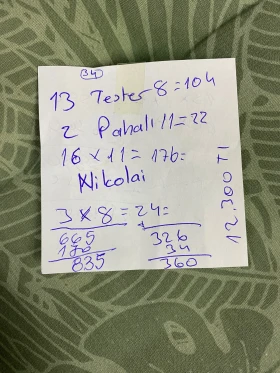 34
13 Tester 8=104
2 Pahalı 11=22
16 x 11= 176=
Nikolai
3 x 8 = 24=
665
170
835
326
34
360
12.300 Tl